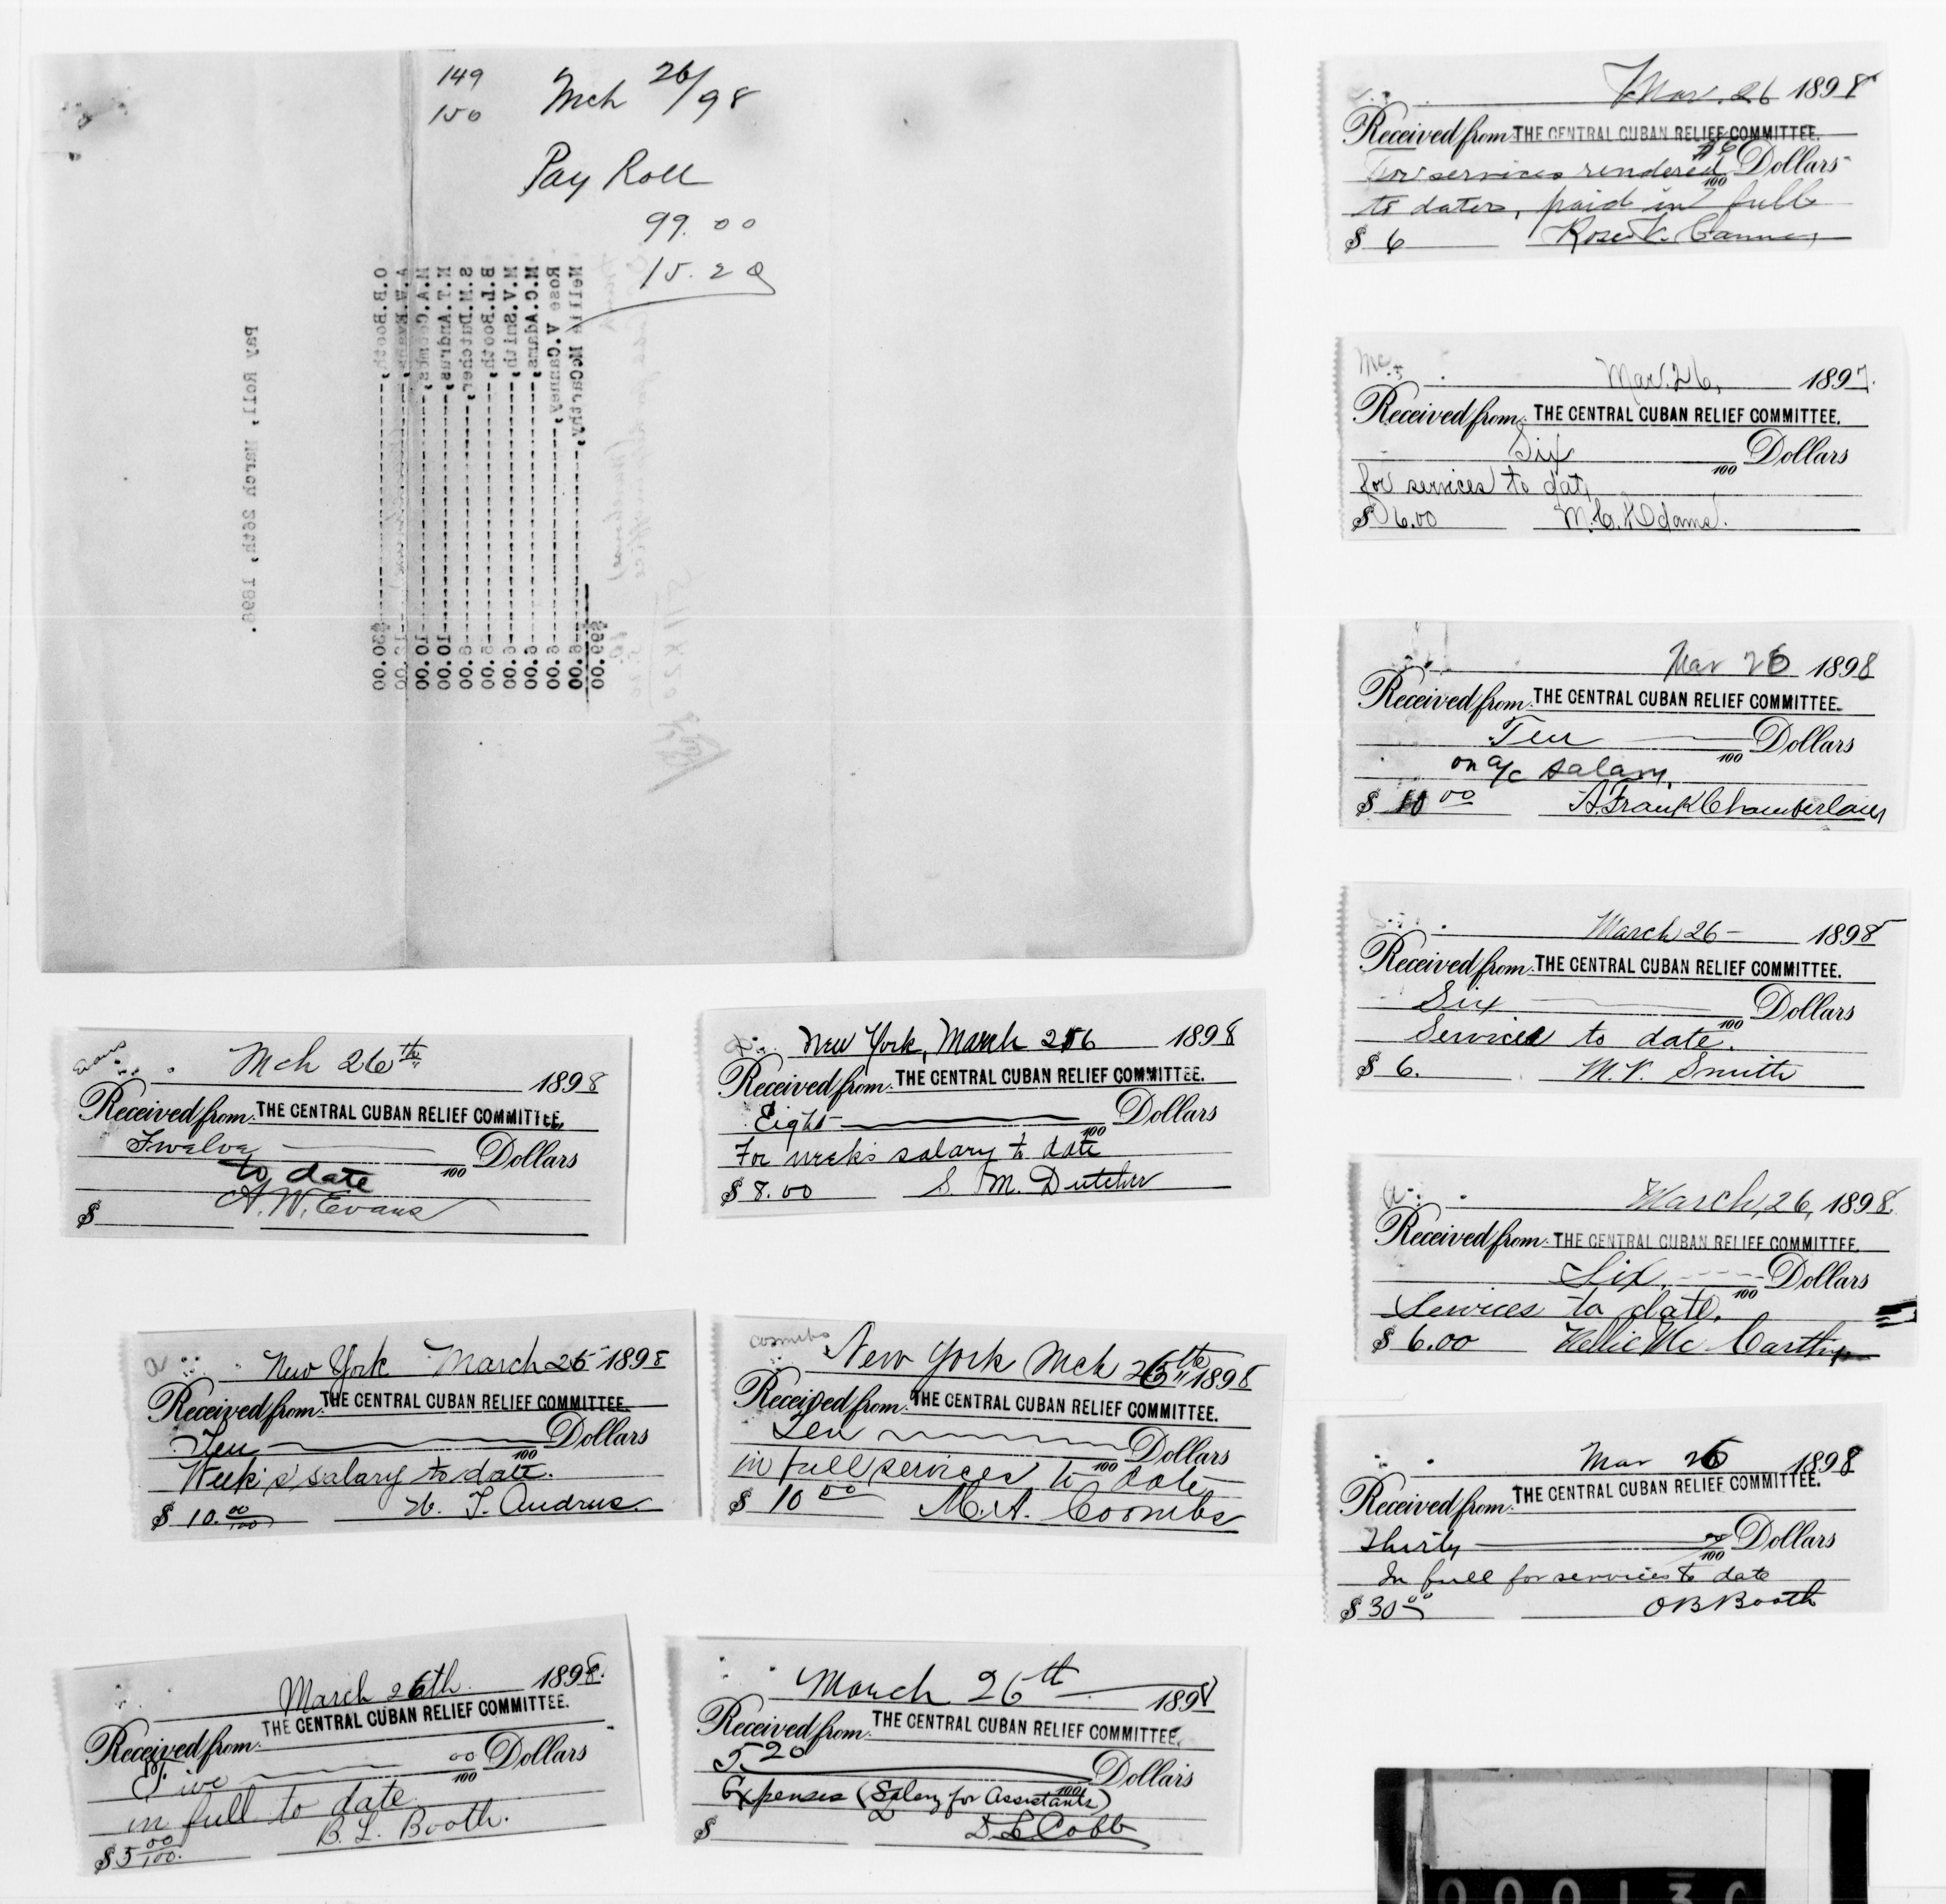 149
150
Mch 26/98
Pay Roll
99.00
15.20
Pay Roll, March 26th, 1898.
O.B.Booth,----$30.00
A.W.Evans,----12.00
M.A.Coombs,----10.00
N.T.Andrus,----10.00
S.M.Dutcher,----8.00
B.L.Booth,----5.00
M.V.Smith,----6.00
M.C.Adams,----6.00
Rose V.Canney,----6.00
Nellie McCarthy,----6.00
$99.00
Mar. 26 1898
Received from THE CENTRAL CUBAN RELIEF COMMITTEE.
$6
For services rendered 100 Dollars
to date, paid in full
$ 6 Rose V. Canney
Mar. 26, 1897.
Received from THE CENTRAL CUBAN RELIEF COMMITTEE.
Six 100 Dollars
for services to date
$ 6.00 M.C. Adams.
Mar 26 1898
Received from THE CENTRAL CUBAN RELIEF COMMITTEE.
Ten 100 Dollars
on a/c salary.
$ 10 00 A. Frank Chamberlain
March 26 - 1898
Received from THE CENTRAL CUBAN RELIEF COMMITTEE.
Six 100 Dollars
Services to date.
$ 6. M.V. Smith
March, 26, 1898.
Received from THE CENTRAL CUBAN RELIEF COMMITTEE.
Six. 100 Dollars
Services to date.
$ 6.00 Nellie Mc Carthy
Mar 26 1898
Received from THE CENTRAL CUBAN RELIEF COMMITTEE.
Thirty 00/100 Dollars
In full for services to date
$ 30 00 O B Booth
Evans
Mch 26th 1898
Received from THE CENTRAL CUBAN RELIEF COMMITTEE.
Twelve 100 Dollars
to date
$ A.W. Evans
New York, March 26 1898
Received from THE CENTRAL CUBAN RELIEF COMMITTEE.
Eight 100 Dollars
For week's salary to date
$ 8.00 S. M. Dutcher
New York March 26 1898
Received from THE CENTRAL CUBAN RELIEF COMMITTEE.
Ten 100 Dollars
Week's salary to date.
$ 10.00/100 N. T. Andrus
Coombs
New York Mch 26th 1898
Received from THE CENTRAL CUBAN RELIEF COMMITTEE.
Ten 100 Dollars
in full services to date
$ 10 00 M.A. Coombs
March 26th 1898.
Received from THE CENTRAL CUBAN RELIEF COMMITTEE.
Five 00/100 Dollars
in full to date
$5 00/100. B. L. Booth.
March 26th 1898
Received from THE CENTRAL CUBAN RELIEF COMMITTEE.
5 20 100 Dollars
Expenses (Salary for Assistants)
$ D L Cobb